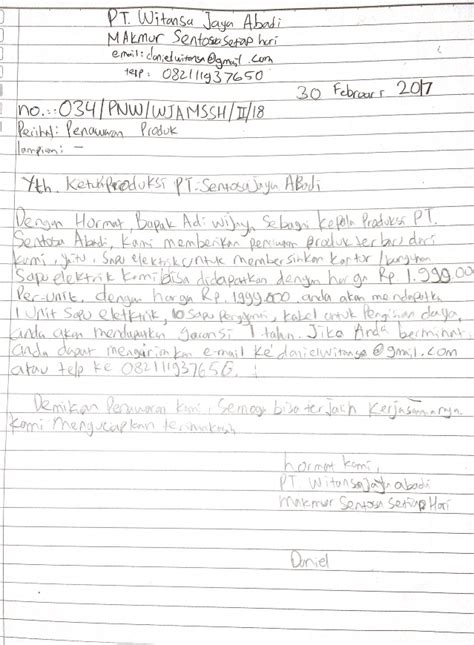 PT. Witansa Jaya Abadi
Makmur Sentosa Setiap hari
email: danielwitansa@gmail.com
telp: 082111937650
30 Februari 2017
no.: 034/PNW/WJAMSSH/II/18
Perihal: Penawaran Produk
lampiran: -
Yth. Ketua Produksi PT. Sentosa Jaya Abadi
Dengan Hormat, Bapak Adi wijaya Sebagai Kepala Produksi PT.
Sentosa Abadi, Kami memberikan penawaran produk terbaru dari
Kami, yaitu, Sapu elektrik untuk membersihkan Kantor / bangunan
Sapu elektrik Kami bisa didapatkan dengan harga Rp 1.999.000
Per-unit, dengan harga Rp. 1999.000 anda akan mendapatkan
1 Unit Sapu elektrik, 10 Sapu Pengganti, kabel untuk Pengisian daya,
anda akan mendapatkan garansi 1 tahun. Jika Anda berminat
anda dapat mengirimkan e-mail ke danielwitansa@gmail.com
atau telp ke 082111937650.
Demikian Penawaran Kami, Semoga bisa terjadi Kerjasamanya
Kami mengucapkan terimakasih
hormat kami,
PT. Witansa Jaya abadi
Makmur Sentosa Setiap Hari
Daniel